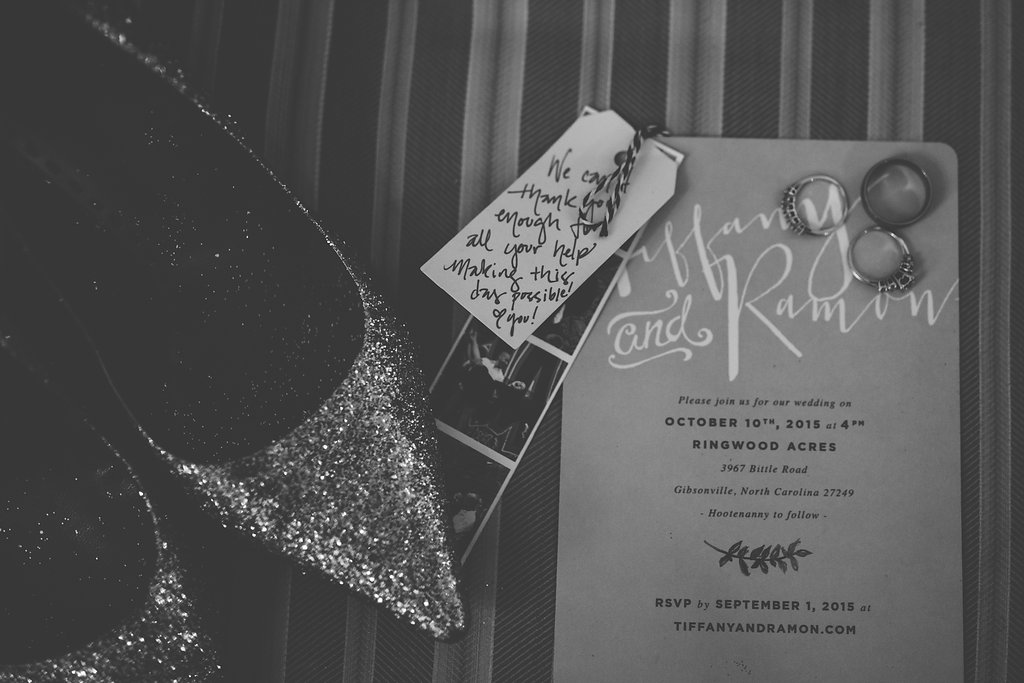 We can
thank you
enough for
all your help
making this
day possible!
& you!
Tiffany
and Ramon
Please join us for our wedding on
OCTOBER 10TH, 2015 at 4PM
RINGWOOD ACRES
3967 Bittle Road
Gibsonville, North Carolina 27249
- Hootenanny to follow -
RSVP by SEPTEMBER 1, 2015 at
TIFFANYANDRAMON.COM